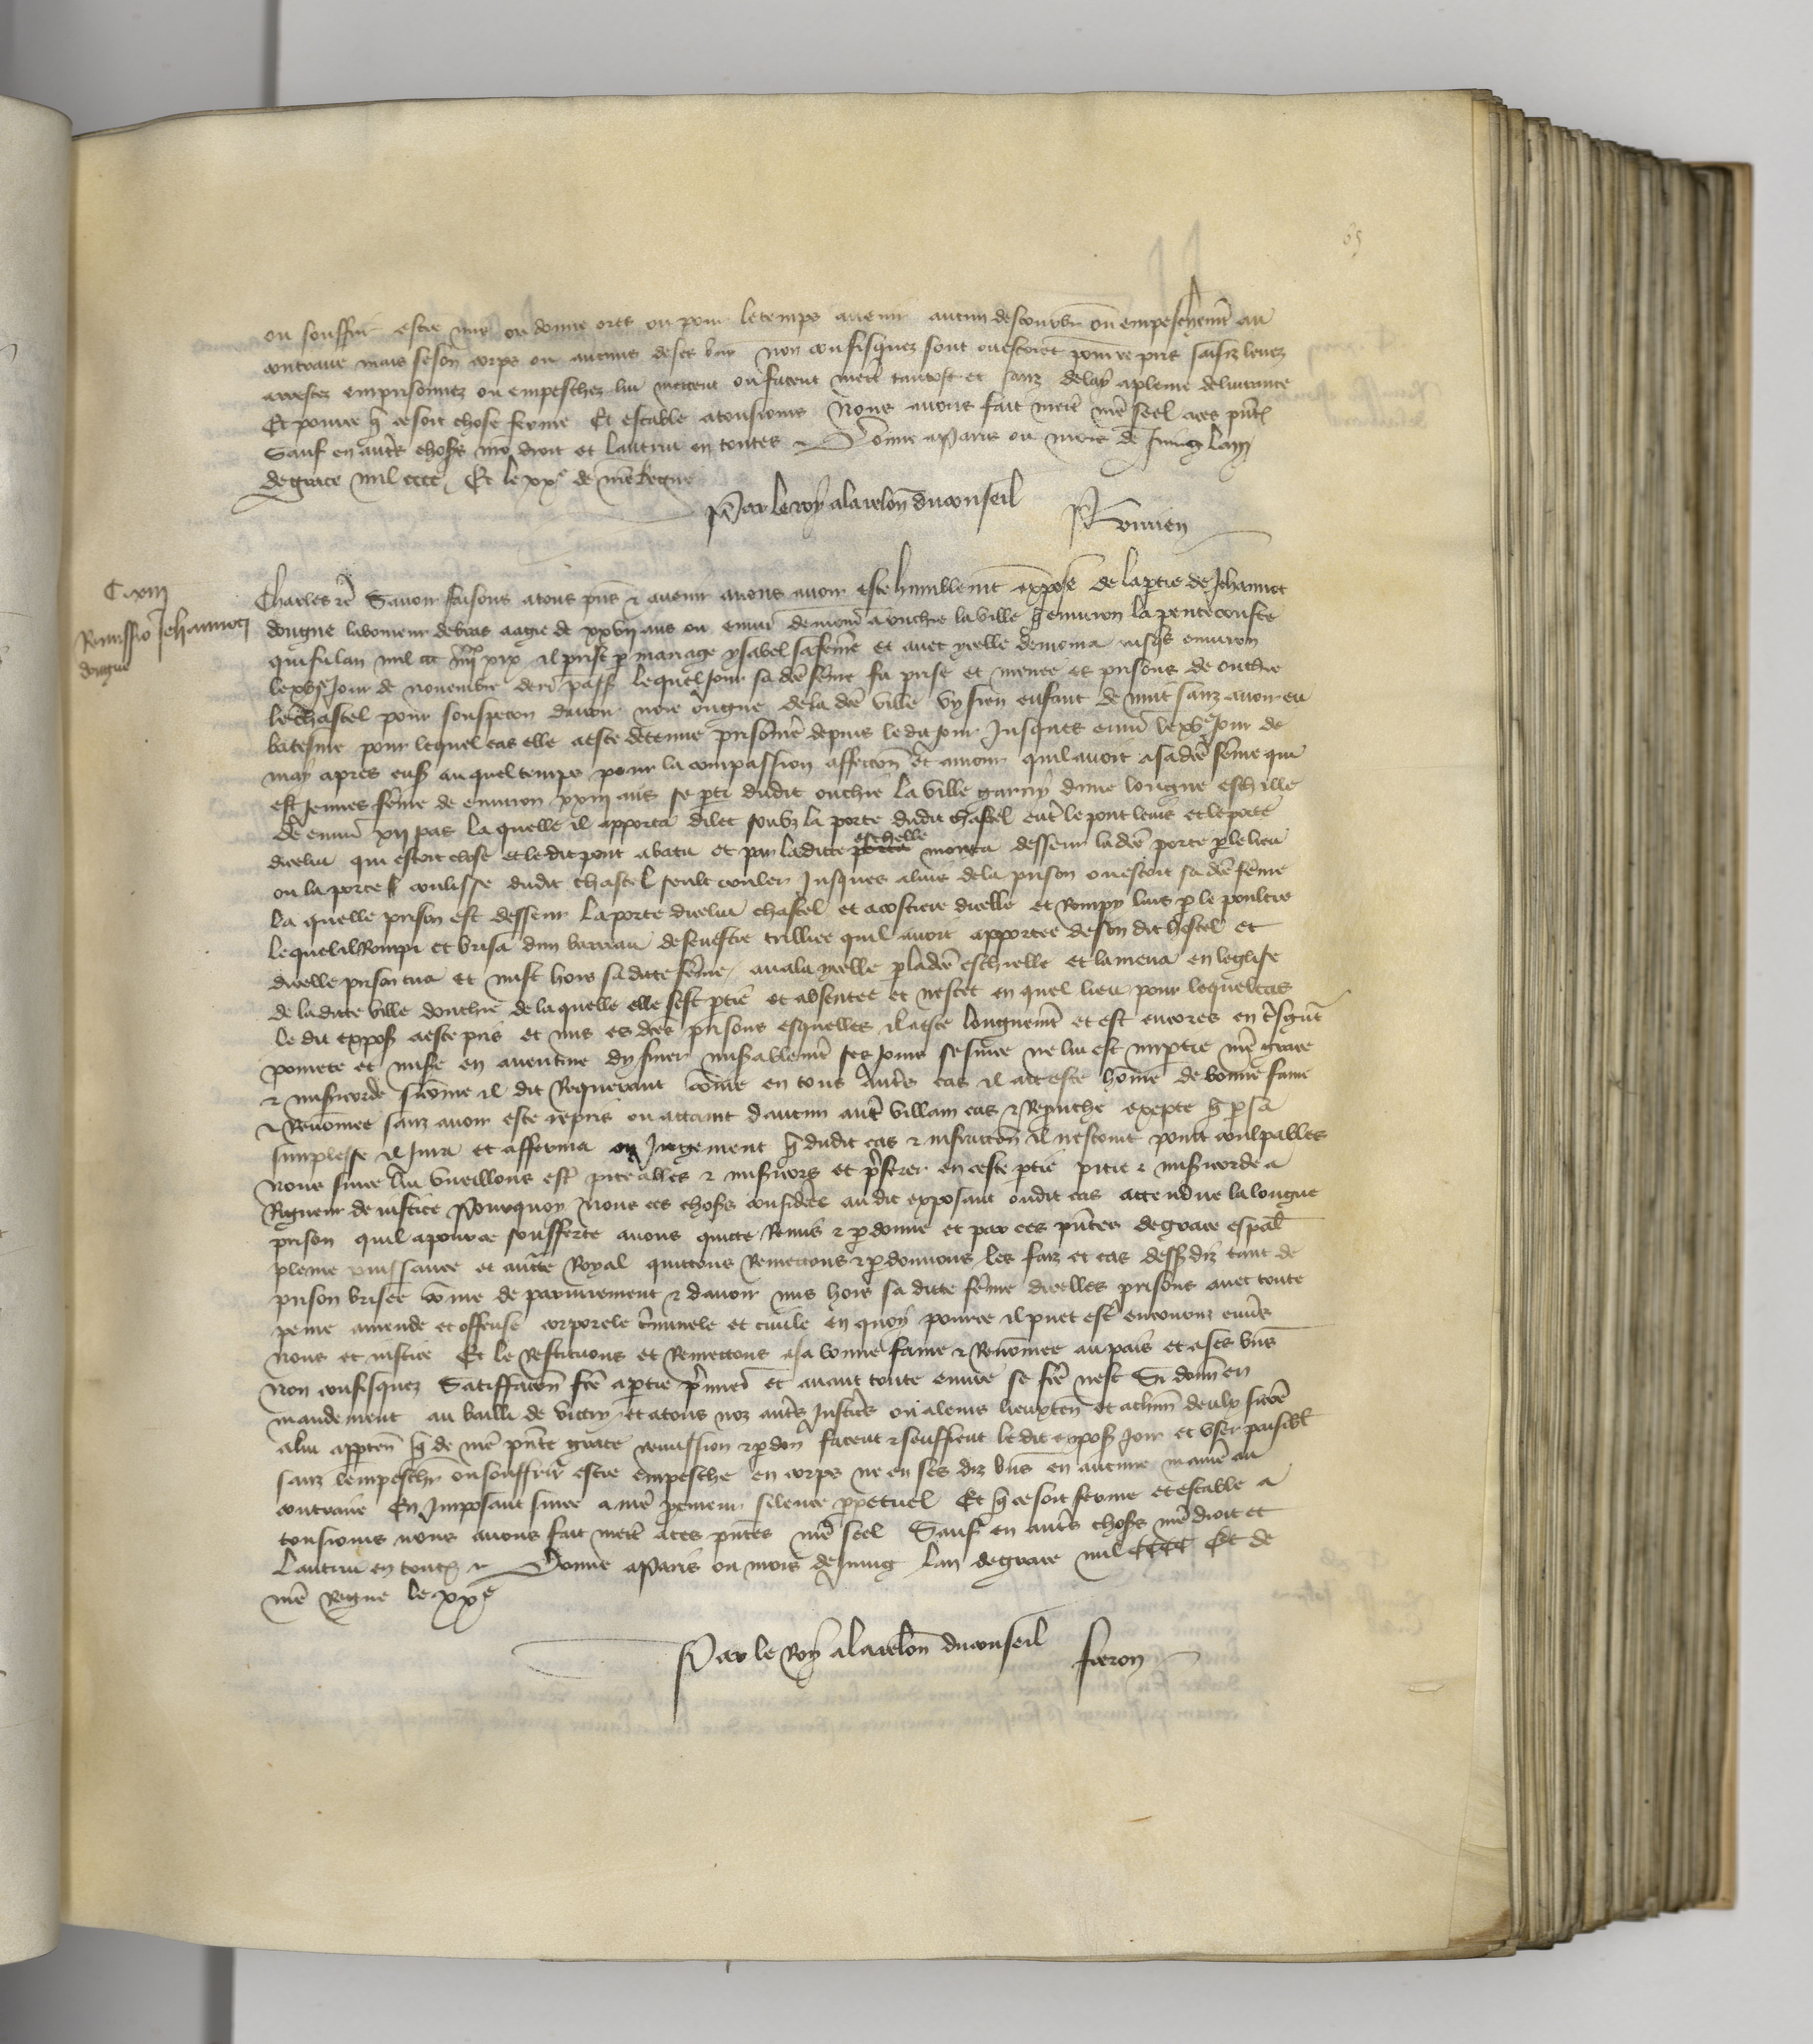 65
ou souffrir estre mis ou donne ores ou pour le temps avenir aucun destourbr ou empeschemt au
contraire mais se son corps ou aucuns de ses biens non confisquez sont ou estoient pour ce pris saisiz levez
arrestez emprisonnez ou empeschez lui mettent ou facent mettre tantost et sanz delay a pleine delivrance
Et pour ce q ce soit chose ferme Et estable a tousiours Nous avons fait mettre nre seel a ces pntes
Sauf en autres choses nre droit et lautrui en toutes Donne a Paris ou mois de Juing lan
de grace mil cccc Et le xxe de nre Regne
Par le roy a la relon du conseil
C xiij
Remissio Johannot
dongne
Charles rc Savoir faisons a tous pns & avenir a nous avoir este humblement expose de la partie de Jehannot
dongne laboureur de bras aagie de xxvij ans ou environ demour a onchie la ville q environ la penthecouste
qui fu lan mil ccc iiijxx xix il prist p mariage ysabel sa feme et avec ycelle demoura jusqs environ
le xve Jour de novembre derr pass lequel Jour sa de feme fu prise et menee es prisons de onchie
le chastel pour souspecon davoir hors de la de ville un sien enfant de nuit sanz avoir eu
batesme pour lequel cas elle a este detenue prisonre depuis le dit Jour Jusques envir le xve Jour de
may apres ens au quel temps pour la compassion affeccon et amour quil avoit a sa de feme qui
est Jeunes feme de environ xxiij ans se parti dudit onchie la ville garny dune longue eschille
de envir xij pas la quelle il apporta dilec soubz la porte dudit chastel entre le pont levis et le porte
dicelui qui estoit close et le dit pont abatu et par la ditte porte eschelle monta desseur la de porte p le lieu
ou la porte coulisse dudit chastel seult couler Jusques a luis de la prison ou estoit sa de feme
la quelle prison est desseur la porte dicelui chastel et a costiere dicelle et Rompy luis p le poultre
le quel il Rompi et brisa dun barreau de fenestre trilliee quil avoit apportee de son dit hostel et
dicelle prison tira et mist hors sa ditte feme avala ycelle p la de eschielle et la mena en leglise
de la ditte ville donchie de la quelle elle sest partie et absentee et ne scet en quel lieu pour lequel cas
le dit expos a este pris et mis es des prisons esquelles il a este longuement et est encores en tresgrt
povrete et mise en aventure dy finer miserablement ses Jours se sur ce ne lui est impartie nre grace
& misericorde si come il dit Requerant come en tous autres cas il ait este home de bonne fame
& Renommee sanz avoir este repris ou attaint daucun autre villain cas & Reprouche excepte q p sa
simplesse il Jura et afferma en Jugement q dudit cas & infraccon il nestoit point coulpables
nous sur ce lui vueillons estre piteables & misericors et preferer en ceste partie pitie & misericorde a
Rigueur de iustice Pourquoy Nous ces choses considerees au dit exposant ou dit cas attendue la longue
prison quil a pour ce soufferte avons quitte Remis & pardonne et par ces pntes de grace espal
pleine puissance et aucte Royal quittons Remettons & pardonnons les faiz et cas dessusdiz tant de
prison brisee come de pariurement & davoir mis hors sa ditte feme dicelles prisons avec toute
peine amende et offense corporele criminele et civile en quoy pour ce il puet estre encouru envers
nous et iustice Et le Restituons et Remettons a sa bonne fame & Renommee au pais et a ses bns
non confisquez Satiffaccon fce a partie premier et avant toute euvre se fce nest Si donn en
mandement au bailli de vittry et a tous noz autres Justicrs ou a leurs lieuxten et a chun deulx si come
a lui apptien q de nre pnte grace remission & pardon facent & seuffrent le dit expos Joir et user paisibl
sanz lempeschr ou souffrir estre empesche en corps ne en ses diz bns en aucune maniere au
contraire En Jmposant sur ce a nre pcureur silence ppetuel Et q ce soit ferme et estable a
tousiours nous avons fait mettre a ces pntes nre seel Sauf en autres choses nre droit et
lautrui en toutes Donne a Paris ou mois de Juing lan de grace mil cccc Et de
nre Regne le xxe
Par le Roy a la relon du conseil
freron